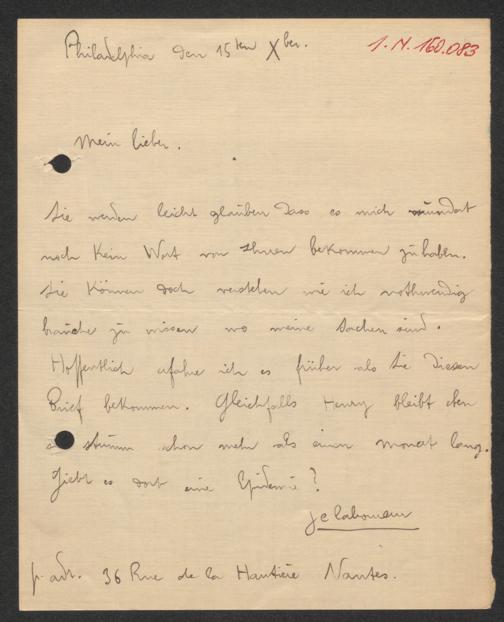 Philadelphia den 15ten Xber.
I.N. 160.083
Mein lieber.
Sie werden leicht glauben dass es mich wundert
noch kein Wort von Ihnen bekommen zu haben.
Sie können doch verstehen wie ich nothwendig
brauche zu wissen wo meine Sachen sind.
Hoffentlich erfahre ich es früher als Sie diesen
Brief bekommen. Gleichfalls Henry bleibt eben
stumm schon mehr als einen Monat lang.
Giebt es dort eine Epidemie?
p. adr. 36 Rue de la Hautière Nantes.